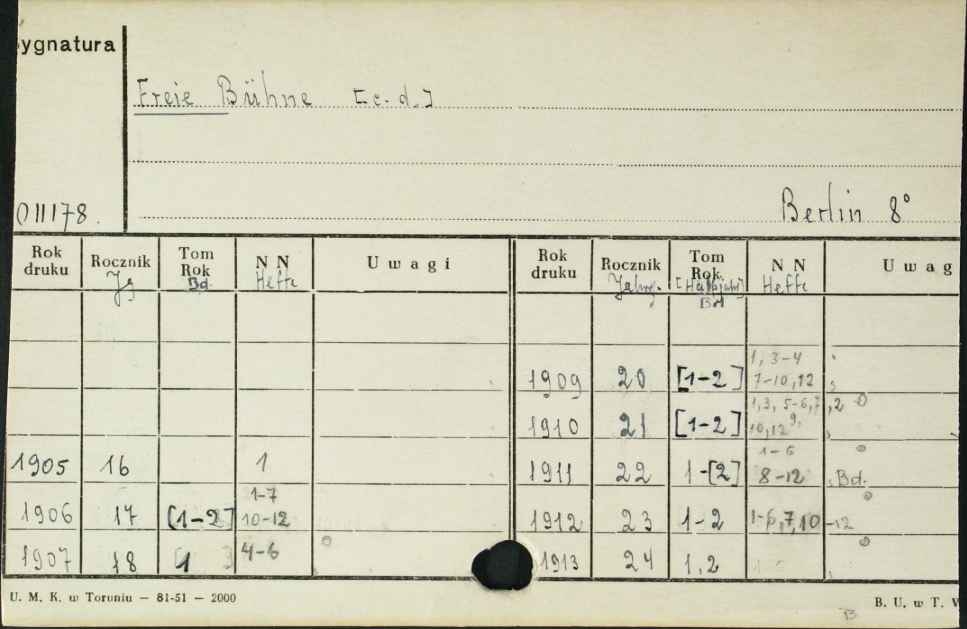 ygnatura
Freie Bühne [c. d.]
011178.
Berlin 8°
Rok druku Rocznik Jg Tom Rok Bd. N N Hefte Uwagi Rok druku Rocznik Jahrg. Tom Rok [Halbjahr] Bd N N Hefte Uwag
1909 20 [1-2] 1, 3-4 7-10, 12
1910 21 [1-2] 1,3, 5-6,7,2 10,12 9,
1905 16 1 1911 22 1-[2] 1-6 8-12 Bd.
1906 17 [1-2] 1-7 10-12 1912 23 1-2 1-6,7,10-12
1907 18 1 4-6 1913 24 1,2
U. M. K. w Toruniu — 81-51 — 2000
B. U. w T. W
B